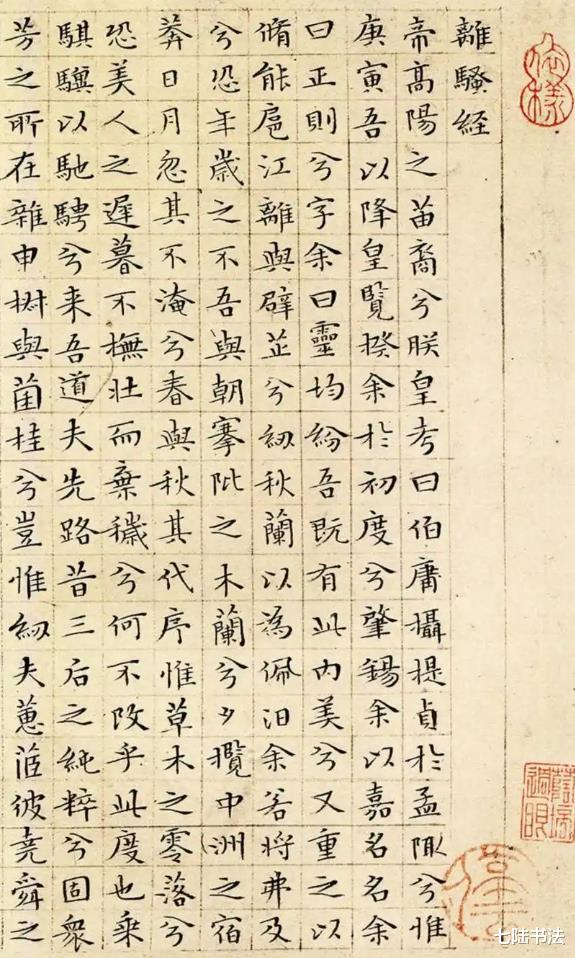 離騷経
帝高陽之苗裔兮朕皇考曰伯庸攝提貞於孟陬兮惟
庚寅吾以降皇覽揆余於初度兮肇錫余以嘉名名余
曰正則兮字余曰靈均紛吾既有此内美兮又重之以
脩能扈江離與辟芷兮紉秋蘭以為佩汨余若將弗及
兮恐年歳之不吾與朝搴阰之木蘭兮夕攬中洲之宿
莽日月忽其不淹兮春與秋其代序惟草木之零落兮
恐美人之遲暮不撫壯而棄穢兮何不改乎此度也乗
騏驥以馳騁兮来吾道夫先路昔三后之純粹兮固衆
芳之所在雜申樹與菌桂兮豈惟紉夫蕙茝彼堯舜之
七陆书法